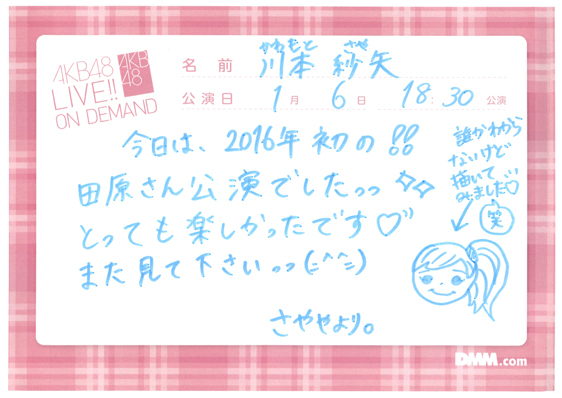 AKB48
LIVE!!
ON DEMAND
AKB
48
かわもと さや
名前 川本 紗矢
公演日 1月 6日 18:30 公演
今日は、2016年初の!!
田原さん公演でしたっっ
とっても楽しかったです♡
また見て下さいっっ(=^^=)
さややより。
誰かわから
ないけど
描いて
みました♡
笑
DMM.com